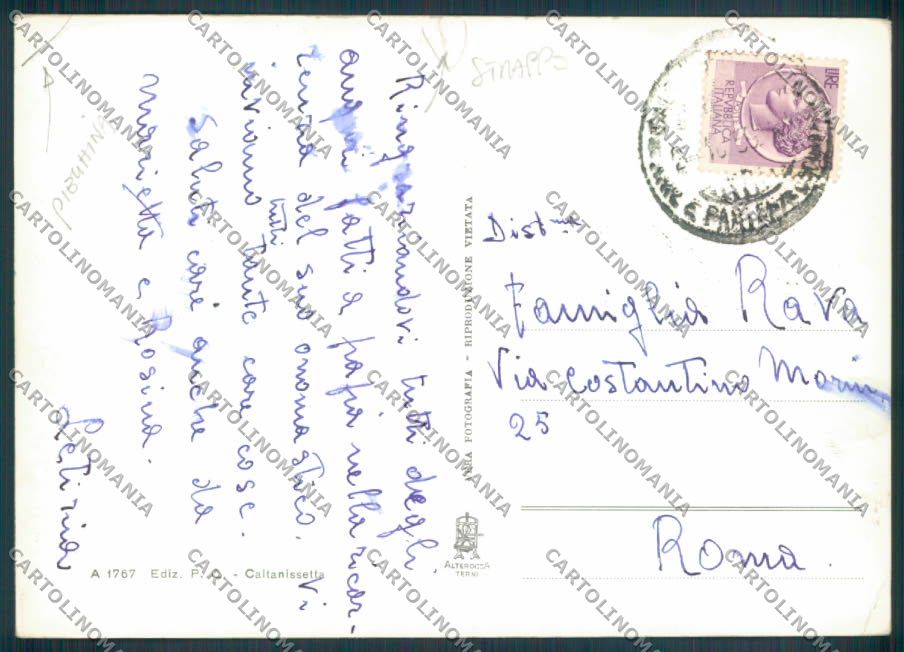 Ringraziandovi tutti degli
auguri fatti a papà nella ricor-
renza del suo onomastico. Vi
inviamo tutti tante care cose.
Saluti cari anche da
Marietta e Rosina.
Letizia
PIEGHINA
STRAPPO
LIRE
REPVBBLICA
ITALIANA
Dist.ma
Famiglia Rava
Via Costantino Morin,
25
Roma.
VERA FOTOGRAFIA - RIPRODUZIONE VIETATA
ALTEROCCA
TERNI
A 1767 Ediz. P. D. - Caltanissetta
CARTOLINOMANIA